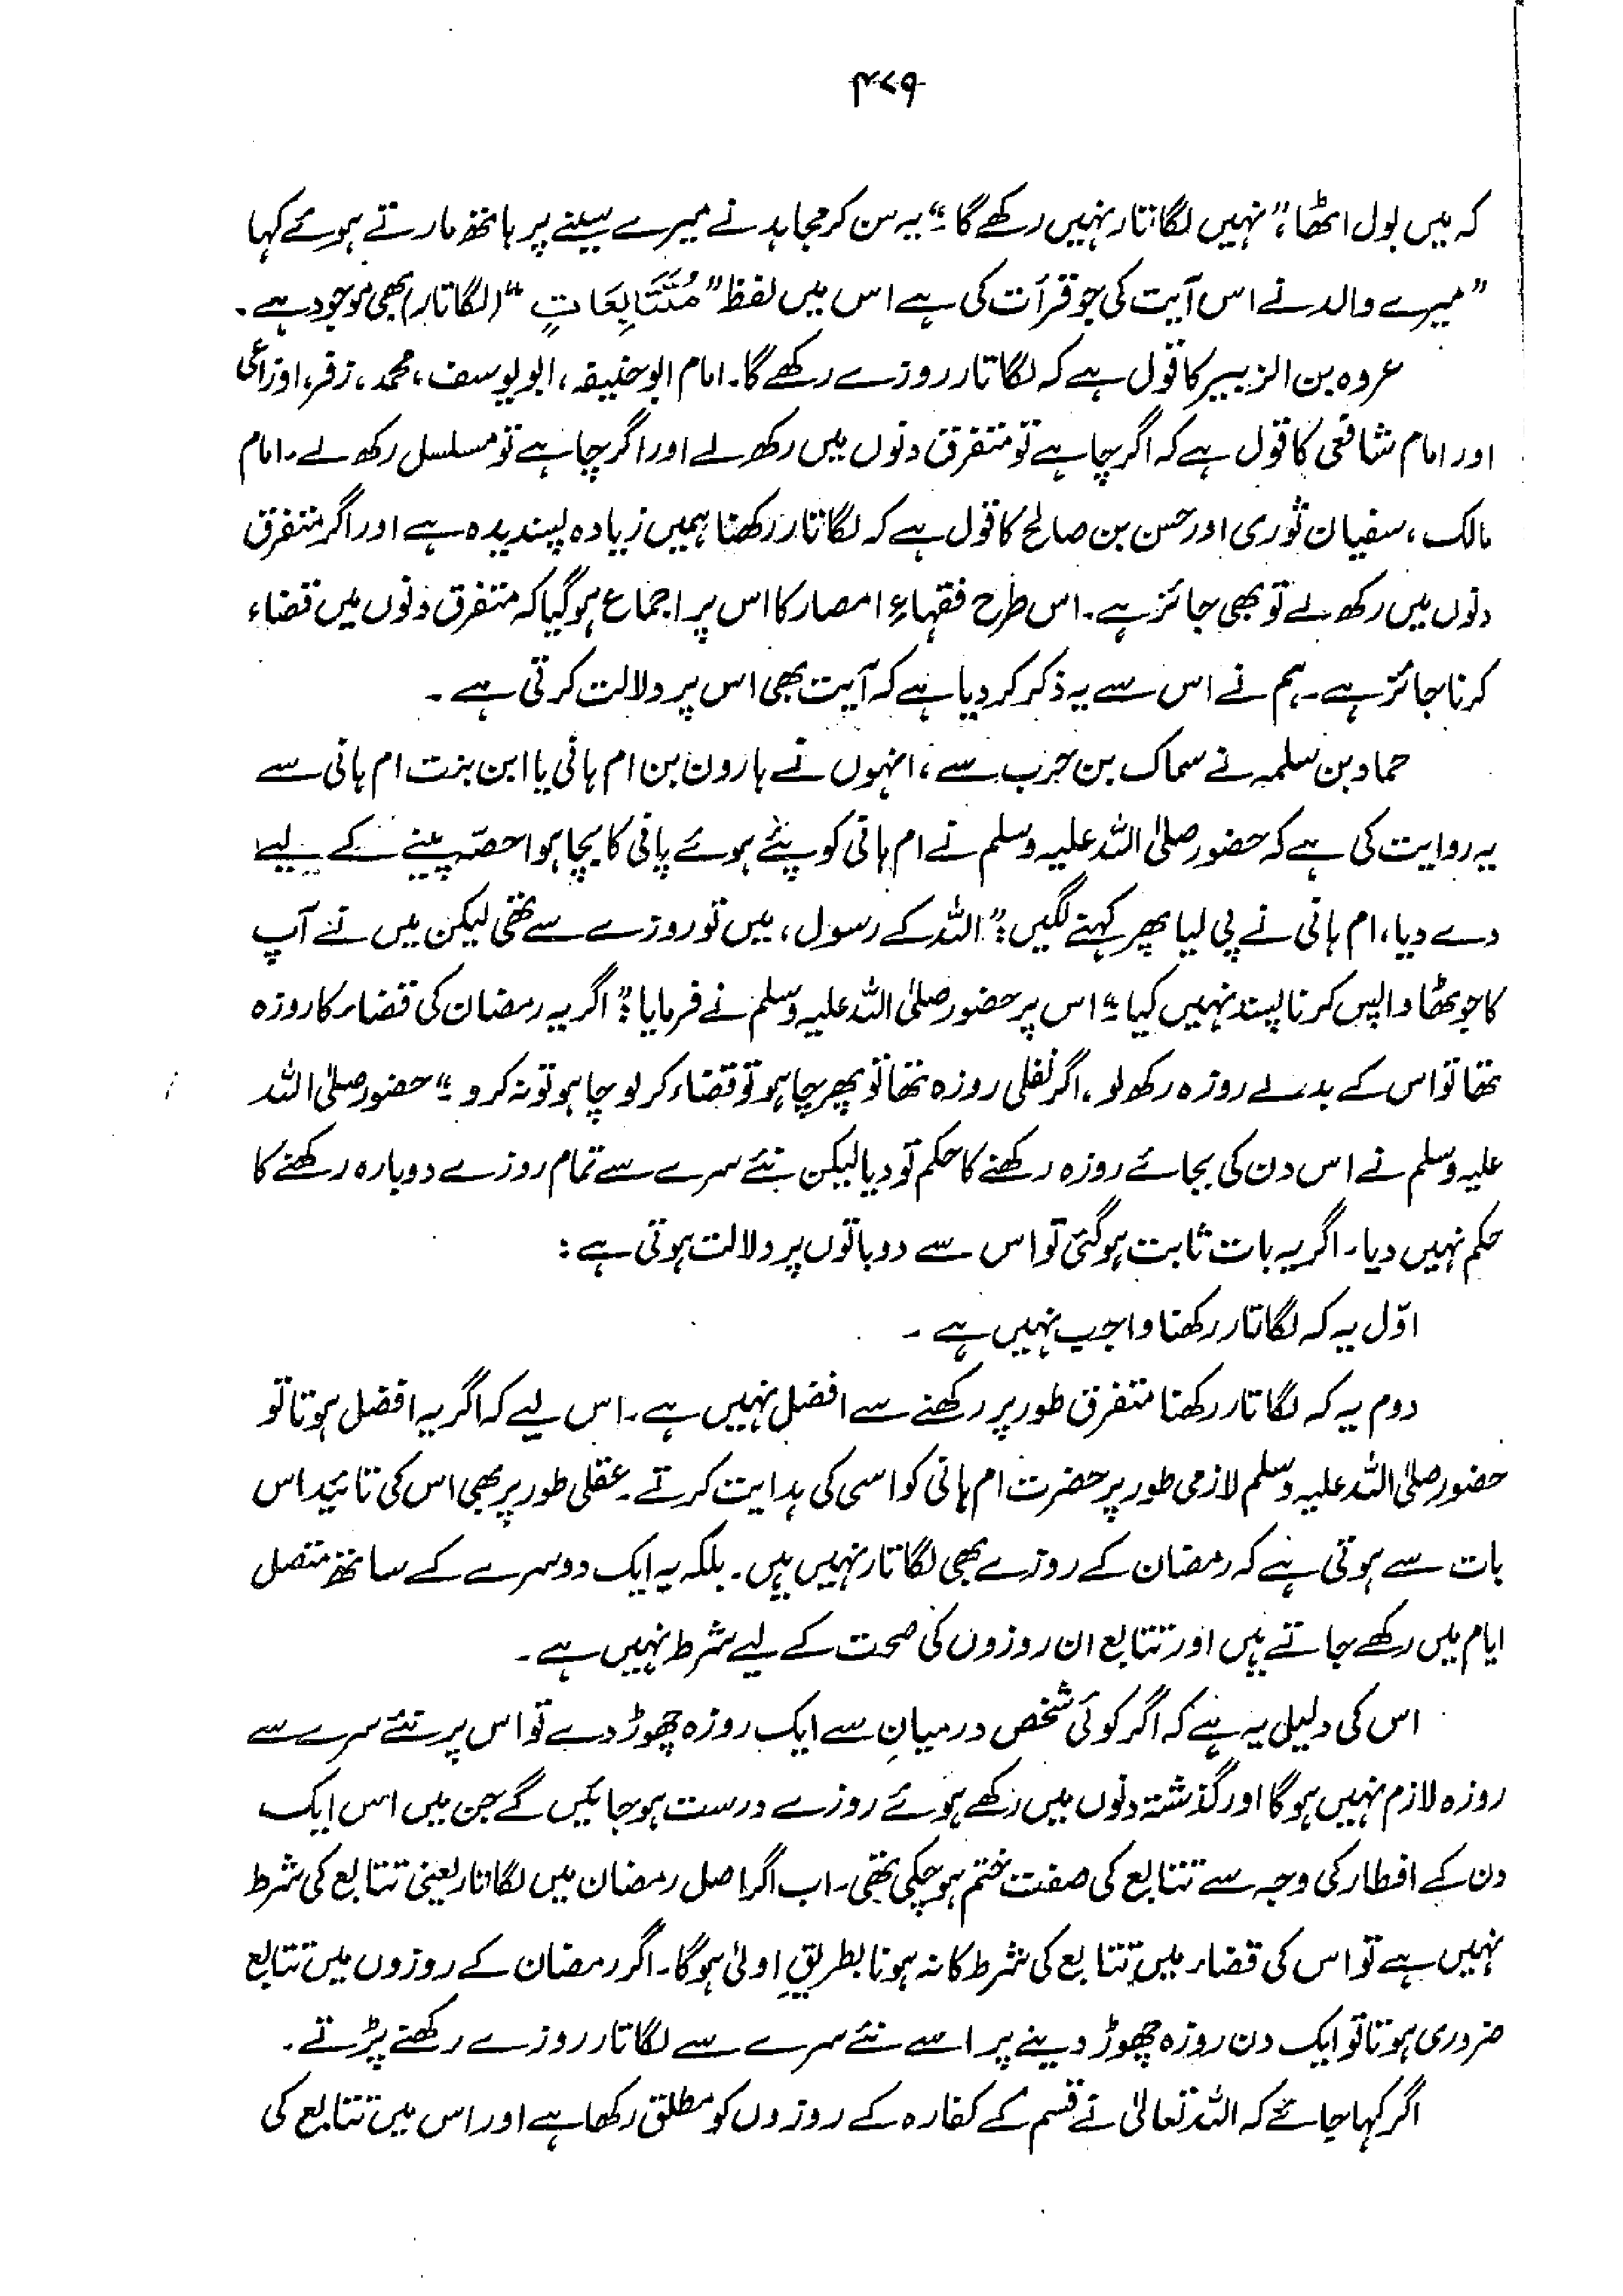 ۴۷۹
کہ میں بول اٹھا، "نہیں لگاتار نہیں رکھے گا۔" یہ سن کر مجاہد نے میرے سینے پر ہاتھ مارتے ہوئے کہا
"میرے والد نے اس آیت کی جو قرأت کی ہے اس میں لفظ "مُتَتَابِعَاتٍ" (لگاتار) بھی موجود ہے۔
عروہ بن الزبیر کا قول ہے کہ لگاتار روزے رکھے گا۔ امام ابوحنیفہ، ابویوسف، محمد، زفر، اوزاعی
اور امام شافعی کا قول ہے کہ اگر چاہے تو متفرق دنوں میں رکھ لے اور اگر چاہے تو مسلسل رکھ لے۔ امام
مالک، سفیان ثوری اور حسن بن صالح کا قول ہے کہ لگاتار رکھنا ہمیں زیادہ پسندیدہ ہے اور اگر متفرق
دنوں میں رکھ لے تو بھی جائز ہے۔ اس طرح فقہاءِ امصار کا اس پر اجماع ہوگیا کہ متفرق دنوں میں قضاء
کرنا جائز ہے۔ ہم نے اس سے یہ ذکر کر دیا ہے کہ آیت بھی اس پر دلالت کرتی ہے۔
حماد بن سلمہ نے سماک بن حرب سے، انہوں نے ہارون بن ام ہانی یا ابن بنت ام ہانی سے
یہ روایت کی ہے کہ حضور صلی اللہ علیہ وسلم نے ام ہانی کو پئے ہوئے پانی کا بچا ہوا حصّہ پینے کے لیے
دے دیا، ام ہانی نے پی لیا پھر کہنے لگیں: "اللہ کے رسول، میں تو روزے سے تھی لیکن میں نے آپ
کا جوٹھا واپس کرنا پسند نہیں کیا۔" اس پر حضور صلی اللہ علیہ وسلم نے فرمایا: "اگر یہ رمضان کی قضاء کا روزہ
تھا تو اس کے بدلے روزہ رکھ لو، اگر نفلی روزہ تھا تو پھر چاہو تو قضاء کر لو چاہو تو نہ کرو۔" حضور صلی اللہ
علیہ وسلم نے اس دن کی بجائے روزہ رکھنے کا حکم تو دیا لیکن نئے سرے سے تمام روزے دوبارہ رکھنے کا
حکم نہیں دیا۔ اگر یہ بات ثابت ہوگئی تو اس سے دو باتوں پر دلالت ہوتی ہے:
اوّل یہ کہ لگاتار رکھنا واجب نہیں ہے۔
دوم یہ کہ لگاتار رکھنا متفرق طور پر رکھنے سے افضل نہیں ہے۔ اس لیے کہ اگر یہ افضل ہوتا تو
حضور صلی اللہ علیہ وسلم لازمی طور پر حضرت ام ہانی کو اسی کی ہدایت کرتے۔ عقلی طور پر بھی اس کی تائید اس
بات سے ہوتی ہے کہ رمضان کے روزے بھی لگاتار نہیں ہیں۔ بلکہ یہ ایک دوسرے کے ساتھ متصل
ایام میں رکھے جاتے ہیں اور تتابع ان روزوں کی صحت کے لیے شرط نہیں ہے۔
اس کی دلیل یہ ہے کہ اگر کوئی شخص درمیان سے ایک روزہ چھوڑ دے تو اس پر نئے سرے سے
روزہ لازم نہیں ہوگا اور گذشتہ دنوں میں رکھے ہوئے روزے درست ہو جائیں گے جن میں اس ایک
دن کے افطار کی وجہ سے تتابع کی صفت ختم ہوچکی تھی۔ اب اگر اصل رمضان میں لگاتار یعنی تتابع کی شرط
نہیں ہے تو اس کی قضاء میں تتابع کی شرط کا نہ ہونا بطریقِ اولیٰ ہوگا۔ اگر رمضان کے روزوں میں تتابع
ضروری ہوتا تو ایک دن روزہ چھوڑ دینے پر اسے نئے سرے سے لگاتار روزے رکھنے پڑتے۔
اگر کہا جائے کہ اللہ تعالیٰ نے قسم کے کفارہ کے روزوں کو مطلق رکھا ہے اور اس میں تتابع کی